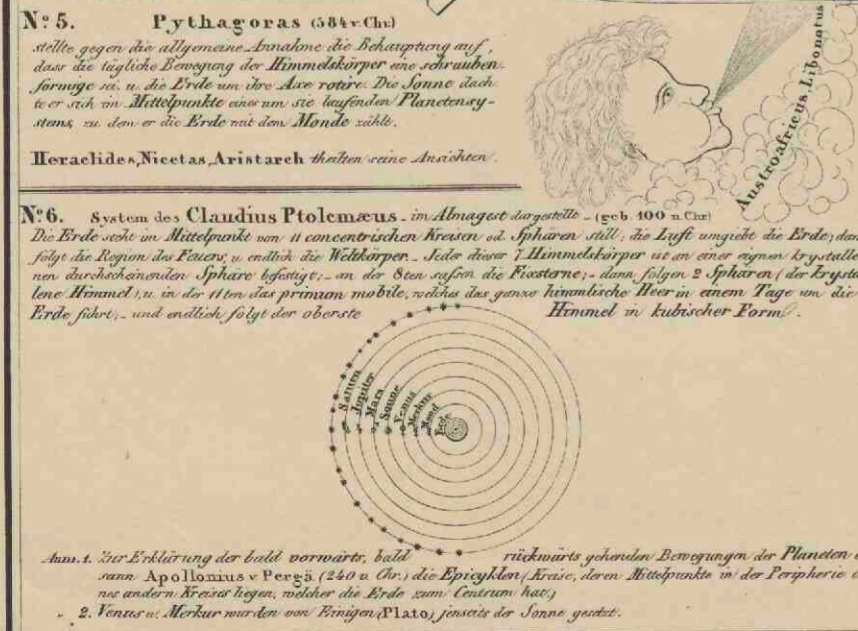 Nº 5. Pythagoras (584 v. Chr.)
stellte gegen die allgemeine Annahme die Behauptung auf,
dass die tägliche Bewegung der Himmelskörper eine schrauben-
förmige sei, u. die Erde um ihre Axe rotire. Die Sonne dach-
te er sich im Mittelpunkte eines um sie laufenden Planetensy-
stems, zu dem er die Erde mit dem Monde zählt.
Heraclides, Nicetas, Aristarch theilten seine Ansichten.
Austroafricus, Libonotus
Nº 6. System des Claudius Ptolemæus - im Almagest dargestellt - (geb. 100 n. Chr.)
Die Erde steht im Mittelpunkt von 11 concentrischen Kreisen od. Sphären still; die Luft umgiebt die Erde, dan
folgt die Region des Feuers, u. endlich die Weltkörper. - Jeder dieser 7 Himmelskörper ist an einer eignen krystalle-
nen durchscheinenden Sphäre befestigt; - an der 8ten sassen die Fixsterne; - dann folgen 2 Sphären (der krysta
lene Himmel), u. in der 11ten das primum mobile, welches das ganze himmlische Heer in einem Tage um die
Erde führt; - und endlich folgt der oberste Himmel in kubischer Form.
Saturn
Jupiter
Mars
Sonne
Venus
Merkur
Mond
Erde
Anm. 1. Zur Erklärung der bald vorwärts, bald rückwärts gehenden Bewegungen der Planeten e
sann Apollonius v Pergä (240 v. Chr.) die Epicyklen (Kreise, deren Mittelpunkte in der Peripherie ei
nes andern Kreises liegen, welcher die Erde zum Centrum hat.)
- 2. Venus u. Merkur wurden von Einigen (Plato) jenseits der Sonne gesetzt.